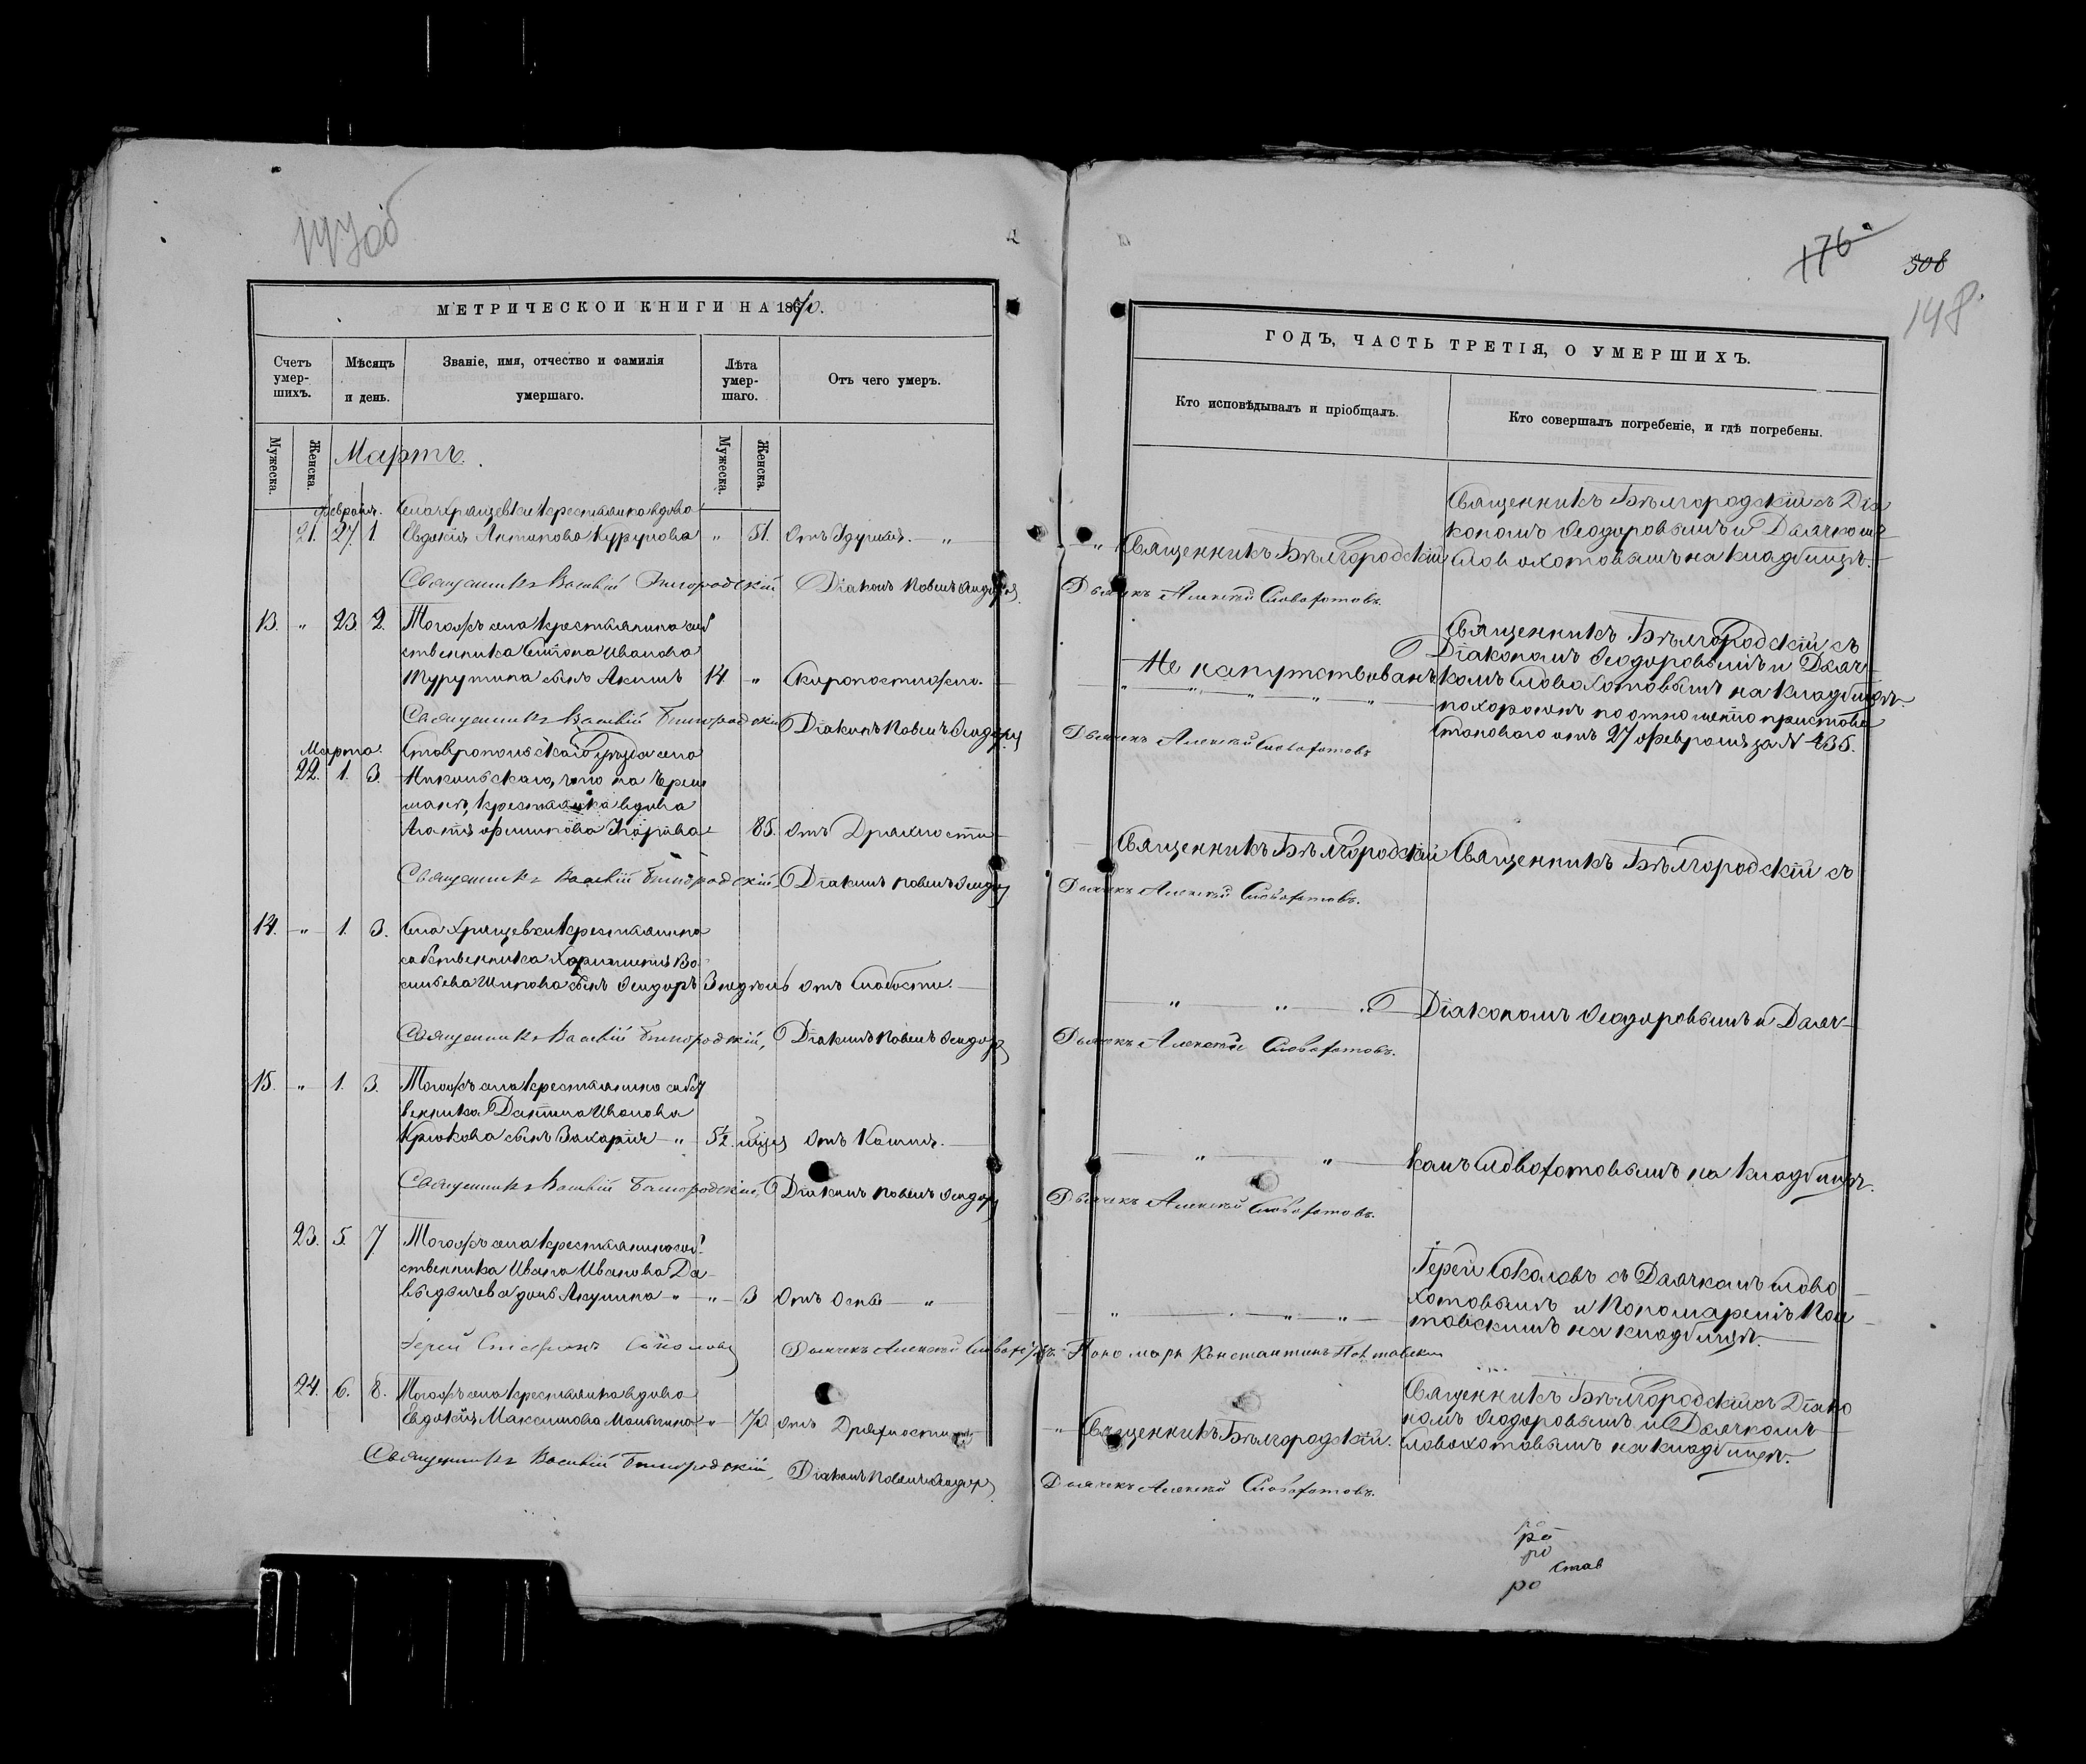 147об
МЕТРИЧЕСКОИ КНИГИ НА 1870.
Счетъ умер-шихъ.
Мѣсяцъ и день.
Званіе, имя, отчество и фамилія умершаго.
Лѣта умер-шаго.
Отъ чего умеръ.
Мужеска.
Женска.
Мартъ.
Мужеска.
Женска.
Февраля. Села Хрящевки крестьянка вдова
21. 27. 1. Евдокія Антипова " 51. Отъ Удушья. "
Священникъ Василій Бѣлгородскій Діаконъ Павелъ Ѳеодоровъ
13. " 23. 2. Тогожъ села крестьянина соб
ственника Иванова
Турутина сынъ Акимъ 14. " Скоропостижно.
Священникъ Василій Бѣлгородскій Діаконъ Павелъ Ѳеодоровъ
Марта. Ставропольскаго уѣзда села
22. 1. 3. Никольскаго, что на Черем
шанѣ, крестьянка вдова
Агатія Филипова 85. Отъ Дряхлости
Священникъ Василій Бѣлгородскій Діаконъ Павелъ Ѳеодоровъ
14. " 1. 3. Села Хрящевки крестьянина
собственника Харитона Ва
сильева Шипова сынъ Ѳеодоръ 3 недѣль отъ Слабости.
Священникъ Василій Бѣлгородскій, Діаконъ Павелъ Ѳеодоровъ
15. " 1. 3. Тогожъ села крестьянина собст
венника Данила Иванова
Крюкова сынъ Захарія " 5½ мѣсяц Отъ Кашля.
Священникъ Василій Бѣлгородскій, Діаконъ Павелъ Ѳеодоровъ
23. 5. 7 Тогожъ села крестьянина соб
ственника Ивана Иванова Да
выдычева дочь Акулина " " 3 Отъ Оспы "
Іерей Стефанъ Соколовъ Дьячекъ Алексѣй Словохотовъ
24. 6. 8. Тогожъ села крестьянка вдова
Евдокія Максимова " 70 отъ Дряхлости
Священникъ Василій Бѣлгородскій, Діаконъ Павелъ Ѳеодоровъ
176
308
148.
ГОДЪ, ЧАСТЬ ТРЕТІЯ, О УМЕРШИХЪ.
Кто исповѣдывалъ и пріобщалъ.
Кто совершалъ погребеніе, и гдѣ погребены.
Священникъ Бѣлгородскій съ Діа
кономъ Ѳеодоровымъ и Дьячкомъ
" Священникъ Бѣлгородскій Словохотовымъ на кладбищѣ.
Дьячекъ Алексѣй Словохотовъ.
Священникъ Бѣлгородскій съ
Діакономъ Ѳеодоровымъ и Дьяч-
Не напутствованъ комъ Словохотовымъ на кладбищѣ.
" " " " " похороненъ по отношенію пристава
Становаго отъ 27 февраля за N 435.
Дьячекъ Алексѣй Словохотовъ
Священникъ Бѣлгородскій Священникъ Бѣлгородскій съ
Дьячекъ Алексѣй Словохотовъ.
" " " Діакономъ Ѳеодоровымъ и Дьяч-
Дьячекъ Алексѣй Словохотовъ.
" " комъ Словохотовымъ на кладбищѣ.
Дьячекъ Алексѣй Словохотовъ.
Іерей Соколовъ съ Дьячкомъ Слово
хотовымъ и Пономаремъ Пол
" " " тавскимъ на кладбищѣ.
Пономарь Константинъ Полтавскій
Священникъ Бѣлгородскій съ Діако
номъ Ѳеодоровымъ и Дьячкомъ
" Священникъ Бѣлгородскій. Словохотовымъ на кладбищѣ.
Дьячекъ Алексѣй Словохотовъ.
ро
ро
ро
Став
ро